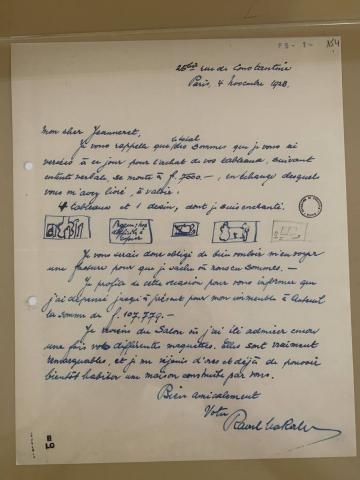 F3-3-
154
25bis rue de Constantine
Paris, 4 novembre 1923.
Mon cher Jeanneret,
Je vous rappelle que le total des sommes que je vous ai
versées à ce jour pour l'achat de vos tableaux, suivant
entente verbale, se monte à f. 7500.-, en échange desquels
vous m'avez livré, à valoir:
4 tableaux et 1 dessin, dont je suis enchanté.
Je vous serais donc obligé de bien vouloir m'envoyer
une facture pour que je sache où nous en sommes.-
Je profite de cette occasion pour vous informer que
j'ai dépensé jusqu'à présent pour mon immeuble à Auteuil
la somme de f. 107.779.-
Je reviens du Salon où j'ai été admirer encore
une fois vos différentes maquettes. Elles sont vraiment
remarquables, et je me réjouis d'ores et déjà de pouvoir
bientôt habiter une maison construite par vous.
Bien amicalement
Votre
Raoul La Roche